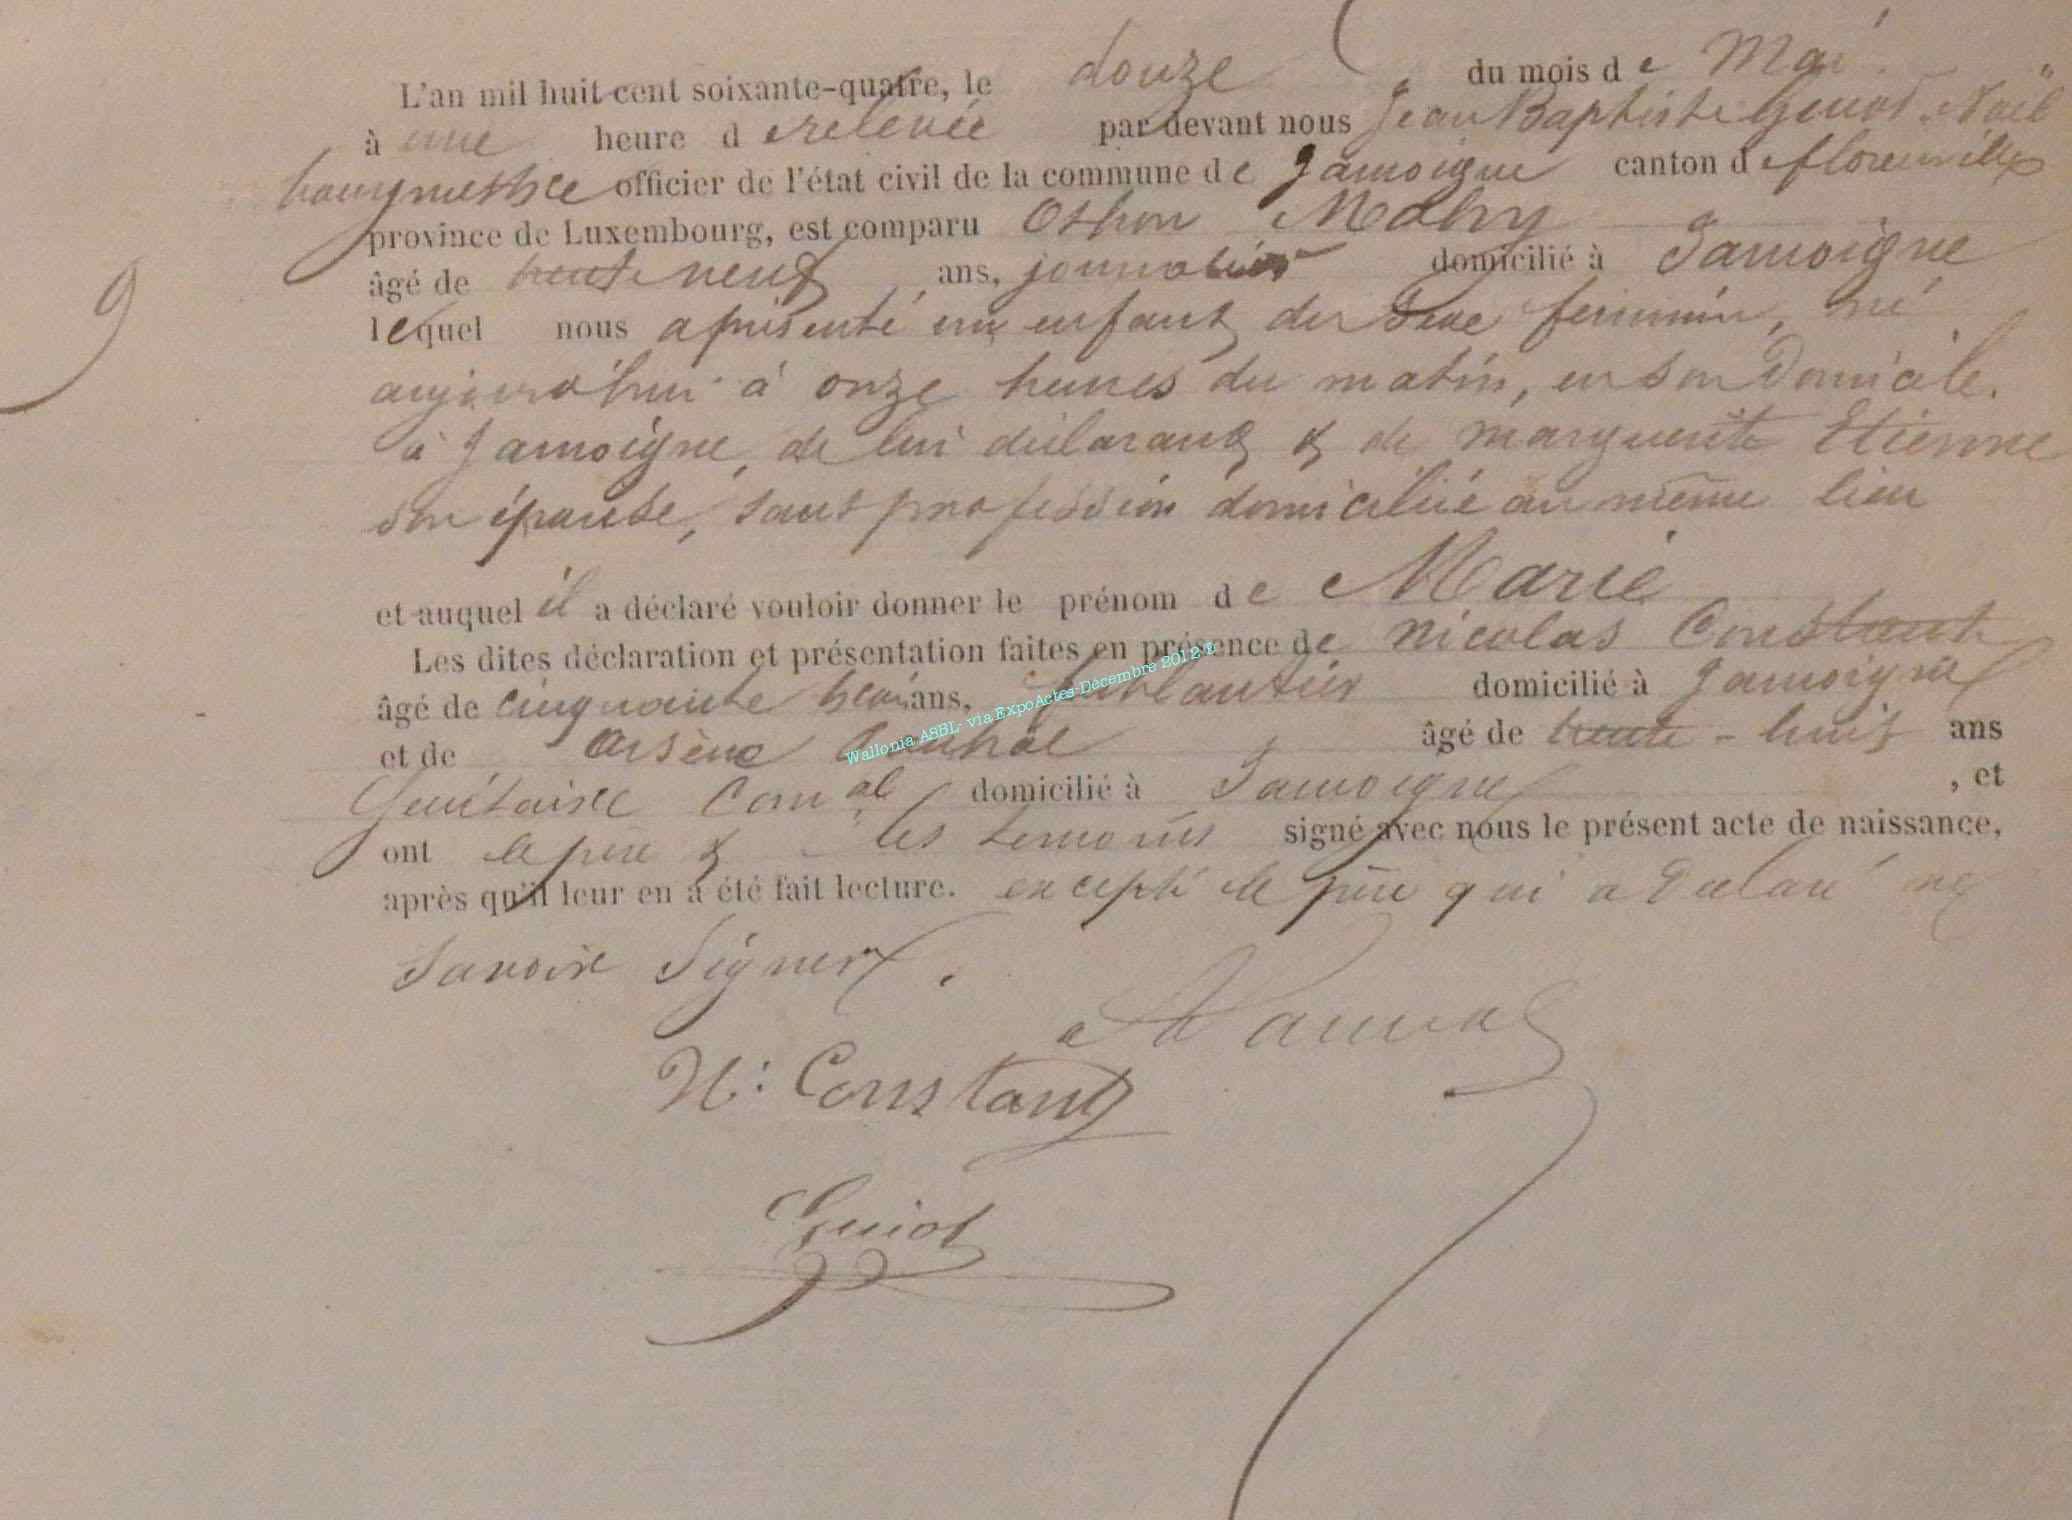 L'an mil huit cent soixante-quatre, le douze du mois de Mai
à une heure de relevée par devant nous Jean Baptiste Guiot Noël
bourgmestre officier de l'état civil de la commune de Jamoigne canton de florenville
province de Luxembourg, est comparu Othon Mahy
âgé de trente neuf ans, journalier domicilié à Jamoigne
lequel nous a présenté un enfant du sexe feminin, né
aujourd'hui à onze heures du matin, en son Domicile.
à Jamoigne, de lui déclarant & de marguerite Etienne
son épouse, sans profession domiciliée au même lieu
et auquel il a déclaré vouloir donner le prénom de Marie
Les dites déclaration et présentation faites en présence de nicolas Constant
âgé de cinquante trois ans, ferblantier domicilié à Jamoigne
et de arsène âgé de trente-huit ans
Sécrétaire Comal domicilié à Jamoigne, et
ont le père & les temoins signé avec nous le présent acte de naissance,
après qu'il leur en a été fait lecture. excepté le père qui a Déclaré ne
savoir signer.
N: Constant
Guiot
9
Wallonia ASBL- via ExpoActes-Décembre 2012 ©